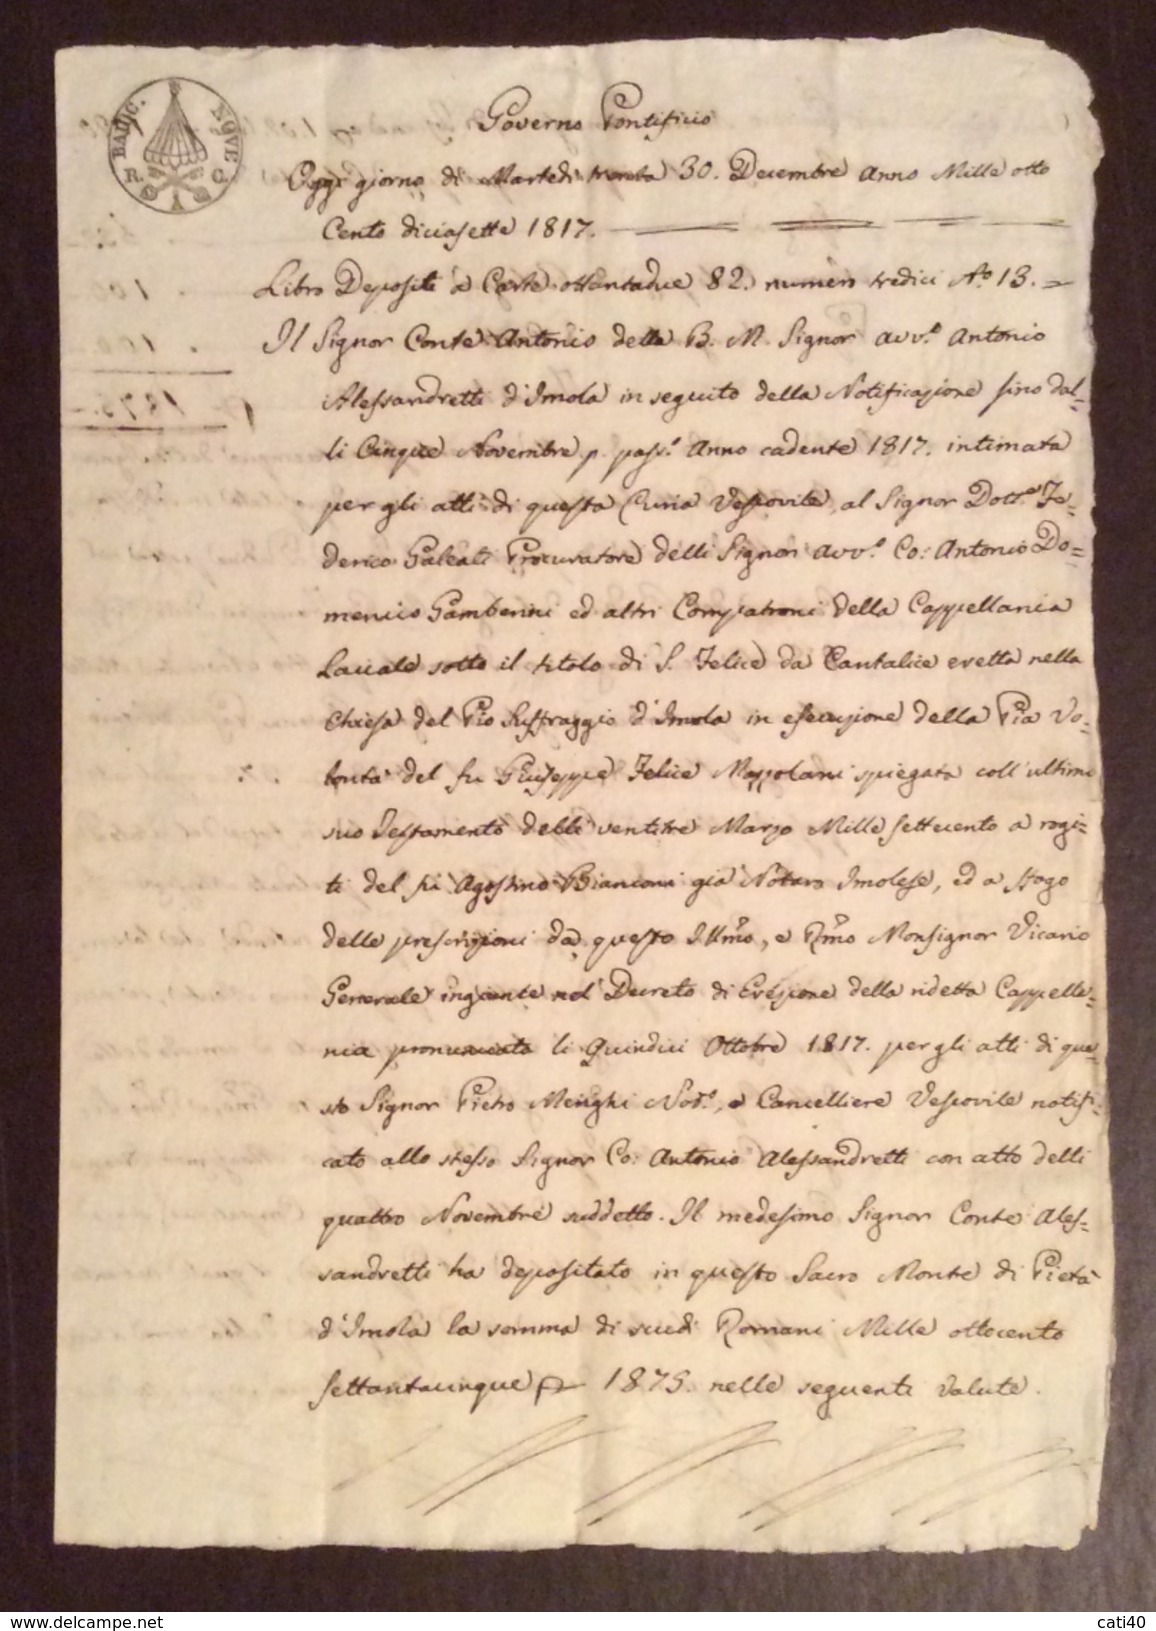 BAIOC. CINQUE
R. C. A.
Governo Pontificio
Oggi giorno di Martedì trenta 30. Decembre Anno Mille otto
Cento diciasette 1817.
Libro Depositi a Carte ottantadue 82. numero tredici N.o 13. =
Il Signor Conte Antonio della B. M. Signor avv.o Antonio
Alessandretti d'Imola in seguito della Notificazione sino dal=
li Cinque Novembre p. pass.o Anno cadente 1817. intimata
per gli atti di questa Curia Vescovile, al Signor Dott.e Fe=
derico Galeati Procuratore delli Signori avv.o Co: Antonio Do=
menico Gamberini ed altri Compatroni della Cappellania
Laicale sotto il titolo di S. Felice da Cantalice eretta nella
Chiesa del Pio Suffraggio d'Imola in esecuzione della Pia Vo=
lontà del fu Giuseppe Felice Mazzolani spiegata coll'ultimo
suo Testamento delli ventitre Marzo Mille settecento a rogi=
ti del fù Agostino Bianconi già Notaro Imolese, ed a sfogo
delle prescrizioni da questo Illmo, e Rmo Monsignor Vicario
Generale ingiunte nel Decreto di Erezione della ridetta Cappella=
nia pronunciato li Quindici Ottobre 1817. per gli atti di que=
sto Signor Pietro Menghi Not.o, e Cancelliere Vescovile notifi=
cato allo stesso Signor Co: Antonio Alessandretti con atto delli
quattro Novembre suddetto. Il medesimo Signor Conte Ales=
sandretti ha depositato in questo Sacro Monte di Pietà
d'Imola la somma di scudi Romani Mille ottocento
settantacinque 1875. nelle seguenti Valute.
cati40